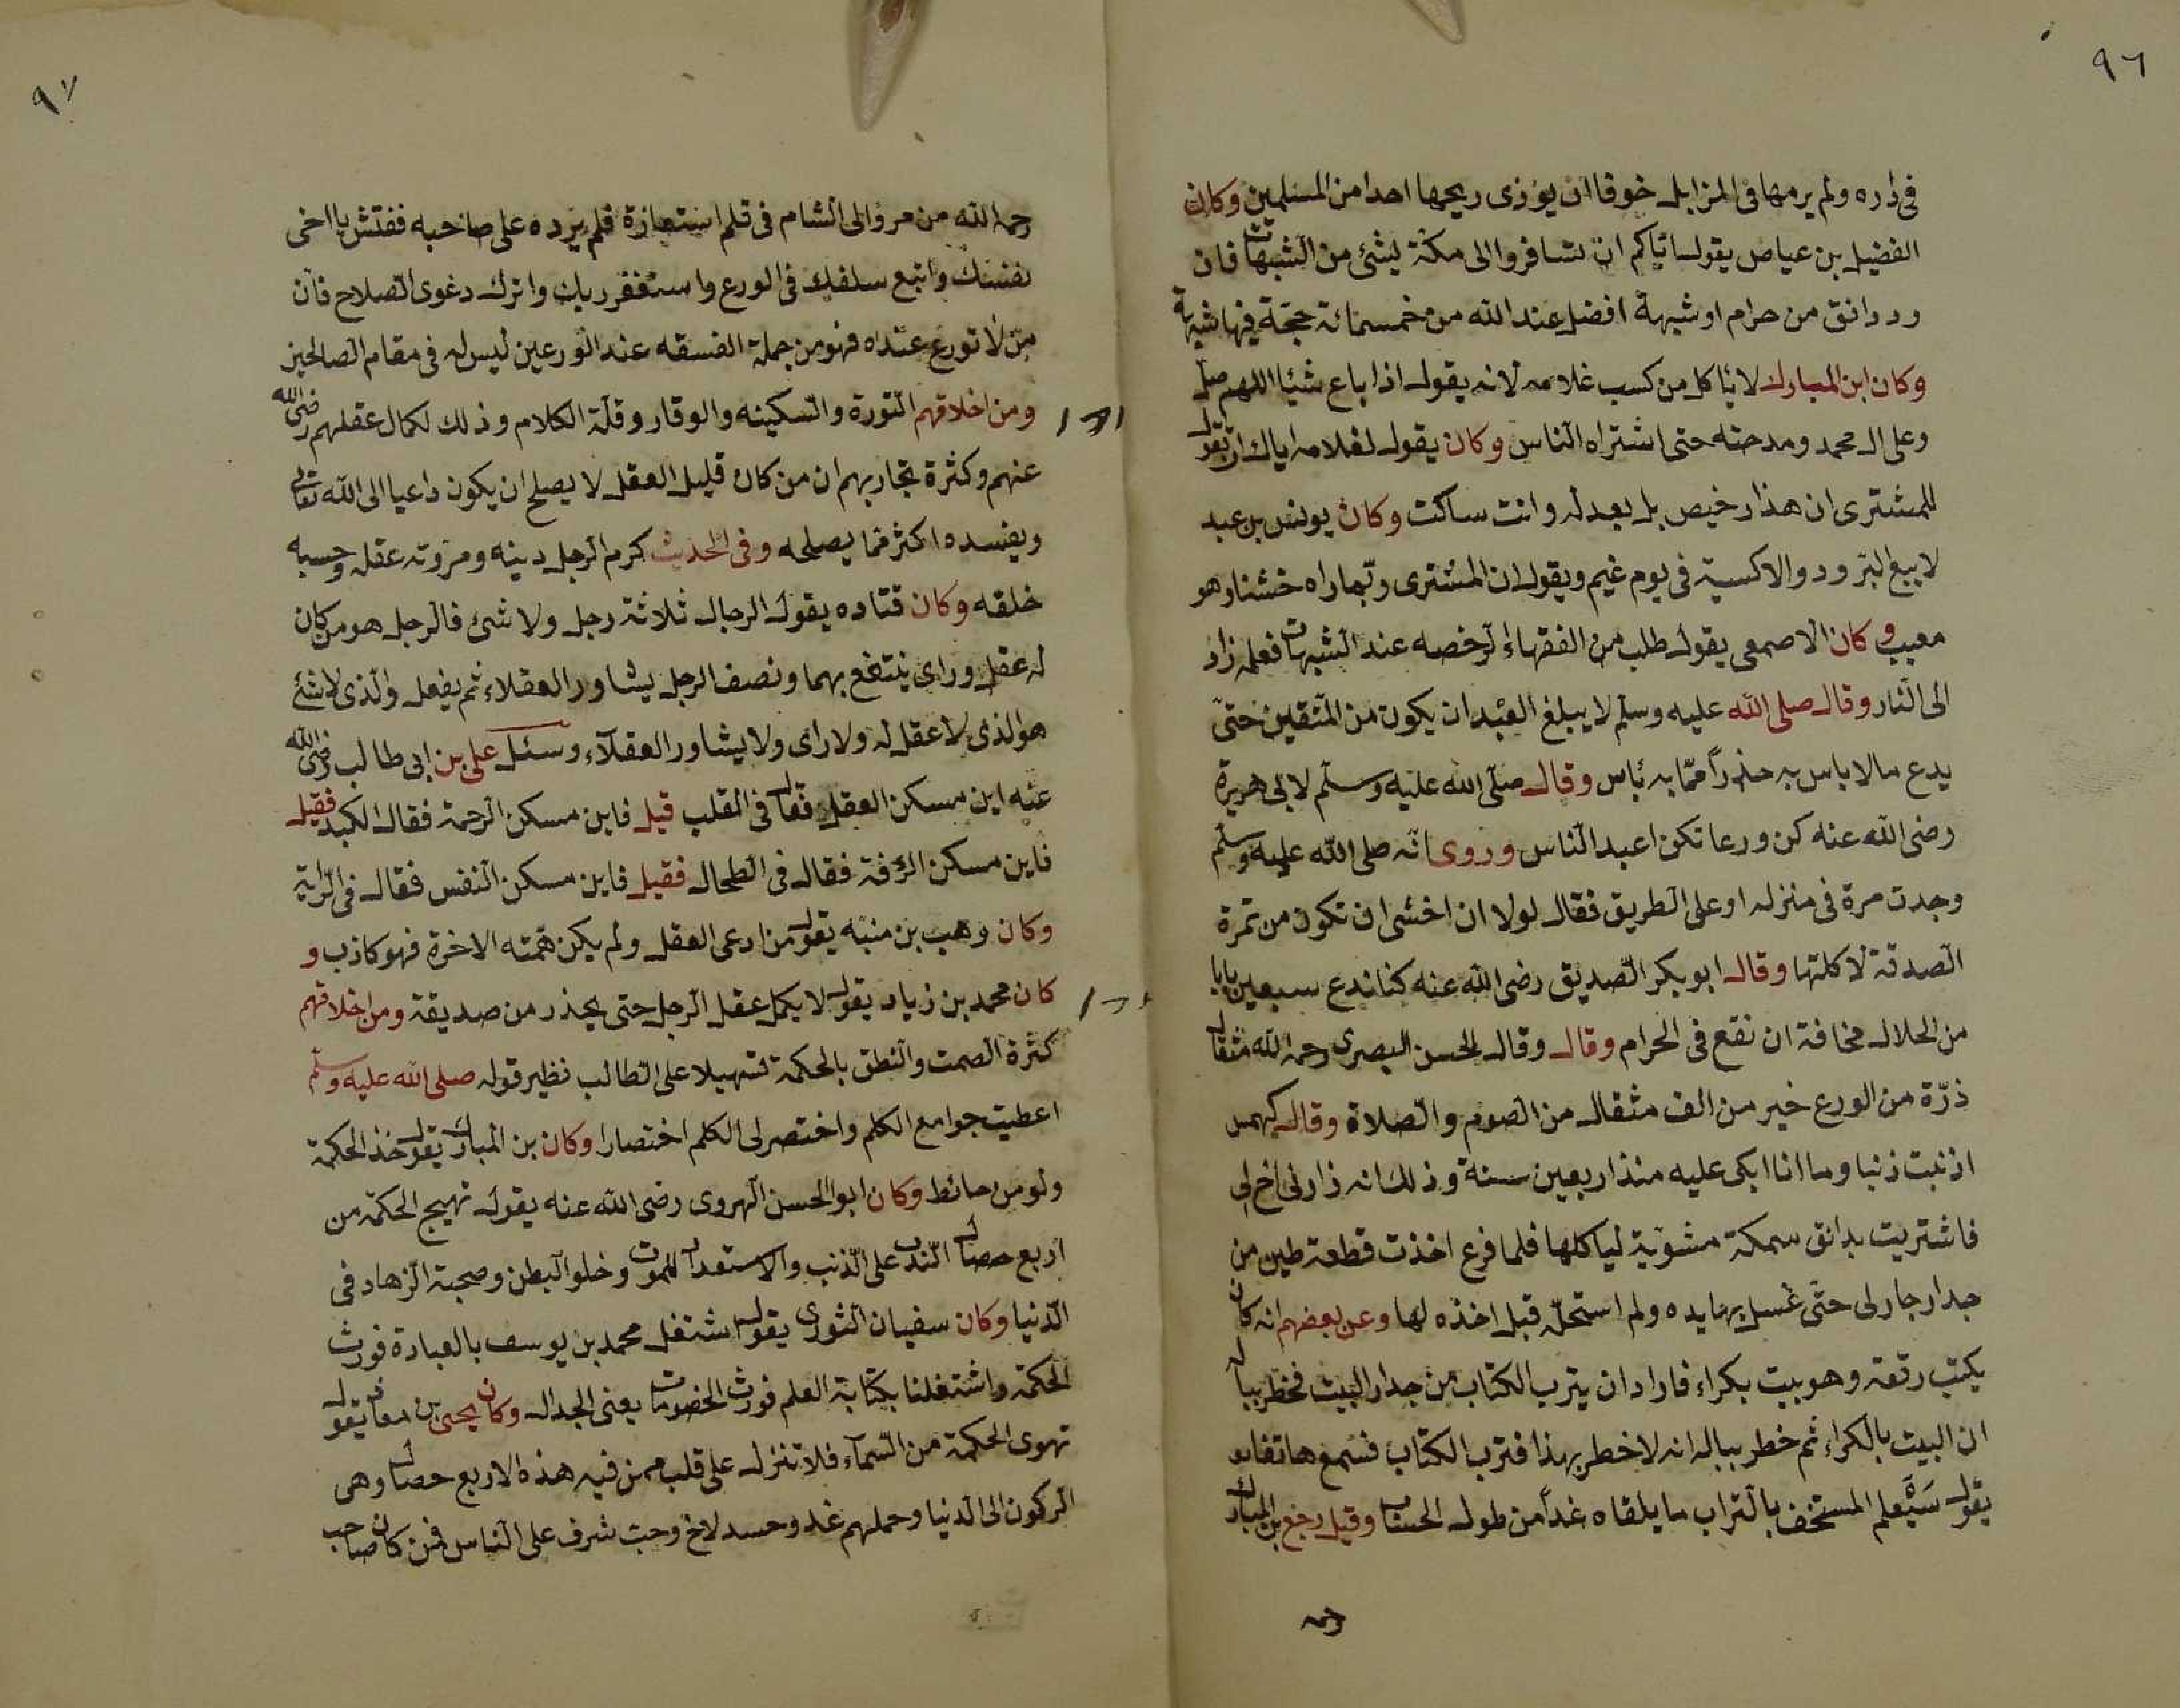 ٩٦
فى داره ولم يرمها فى المزابل خوفا ان يوذى ريحها احدا من المسلمين وكان
الفضيل بن عياض يقول اياكم ان تسافروا الى مكة بشئ من الشبهات فان
رد دانق من حرام او شبهة افضل عند الله من خمسمائة حجة فيها شبهة
وكان ابن المبارك لا ياكل من كسب غلامه لانه يقول اذا باع شئا اللهم صل
وعلى ال محمد ومدحته حتى اشتراه الناس وكان يقول لغلامه اياك ان تقول
للمشترى ان هذا رخيص بل بعه له وانت ساكت وكان يونس بن عبيد
لا يبيع البرود والاكسية فى يوم غيم ويقول ان المشترى ربما راه خشنا وهو
معيب وكان الاصمعى يقول طلب من الفقهاء لرخصه عند الشبهات فعلمه زاد
الى النار وقال صلى الله عليه وسلم لا يبلغ العبد ان يكون من المتقين حتى
يدع مالا باس به حذراً مما به بأس وقال صلى الله عليه وسلم لابى هريرة
رضى الله عنه كن ورعا تكن اعبد الناس وروى انه صلى الله عليه وسلم
وجدت مرة فى منزله او على الطريق فقال لولا ان اخشى ان تكون من تمرة
الصدقة لاكلتها وقال ابو بكر الصديق رضى الله عنه كنا ندع سبعين بابا
من الحلال مخافة ان نقع فى الحرام وقال وقال الحسن البصرى رحمه الله مثقال
ذرة من الورع خير من الف مثقال من الصوم والصلاة وقال كهمس
اذنبت ذنبا وما انا ابكى عليه منذ اربعين سنة وذلك انه زارنى اخ لى
فاشتريت بدانق سمكة مشوية لياكلها فلما فرغ اخذت قطعة طين من
جدار جار لى حتى غسل بها يده ولم استحله قبل اخذه لها وعن بعضهم انه كان
يكتب رقعة وهو بيت بكراء فاراد ان يترب الكتاب من جدار البيت فخطر بباله
ان البيت بالكراء ثم خطر بباله انه لا خطر بهذا فترب الكتاب فسمع هاتفا
يقول سيعلم المستخف بالتراب ما يلقاه غداً من طول الحساب وقيل رجع بن المبارك
رحمه
٩٧
رحمه الله من مرو الى الشام فى قلم استعاره فلم يرده على صاحبه ففتش يا اخى
نفسك واتبع سلفك فى الورع واستغفر ربك واترك دعوى الصلاح فان
من لا تورع عنده فهو من جملة الفسقه عند الورعين ليس له فى مقام الصالحين
ومن اخلاقهم التورة والسكينه والوقار وقلة الكلام وذلك لكمال عقلهم رضى الله
عنهم وكثرة تجاربهم ان من كان قليل العقل لا يصلح ان يكون داعيا الى الله تعالى
ويفسده اكثر مما يصلحه وفى الحديث كرم الرجل دينه ومروته عقله وحسبه
خلقه وكان قتاده يقول الرجال ثلاثة رجل ولا شئ فالرجل هو من كان
له عقل وراى ينتفع بهما ونصف الرجل يشاور العقلاء ثم يفعل والذى لا شئ
هو الذى لا عقل له ولا راى ولا يشاور العقلاء وسئل على بن ابى طالب رضى الله
عنه اين مسكن العقل فقال فى القلب قيل فاين مسكن الرحمة فقال الكبد فقيل
فاين مسكن الرافة فقال فى الطحال فقيل فاين مسكن النفس فقال فى الراية
وكان وهب بن منبه يقول من ادعى العقل ولم يكن همته الاخرة فهو كاذب و
كان محمد بن زياد يقول لا يكمل عقل الرجل حتى يحذر من صديقة ومن اخلاقهم
كثرة الصمت والنطق بالحكمة تسهيلا على الطالب نظير قوله صلى الله عليه وسلم
اعطيت جوامع الكلم واختصر لى الكلم اختصارا وكان بن المبارك يقول خذ الحكمة
ولو من حائط وكان ابو الحسن الهروى رضى الله عنه يقول تهيج الحكمة من
اربع خصال الندب على الذنب والاستعداد للموت وخلو البطن وصحبة الزهاد فى
الدنيا وكان سفيان الثورى يقول اشتغل محمد بن يوسف بالعبادة فورث
الحكمة واشتغلنا بكتابة العلم فورث الخصومات يعنى الجدال وكان يحيى بن معاذ يقول
تهوى الحكمة من السماء فلا تنزل على قلب ممن فيه هذه الاربع خصال وهى
الركون الى الدنيا وحملهم غد وحسد لاخ وحب شرف على الناس فمن كان صاحب